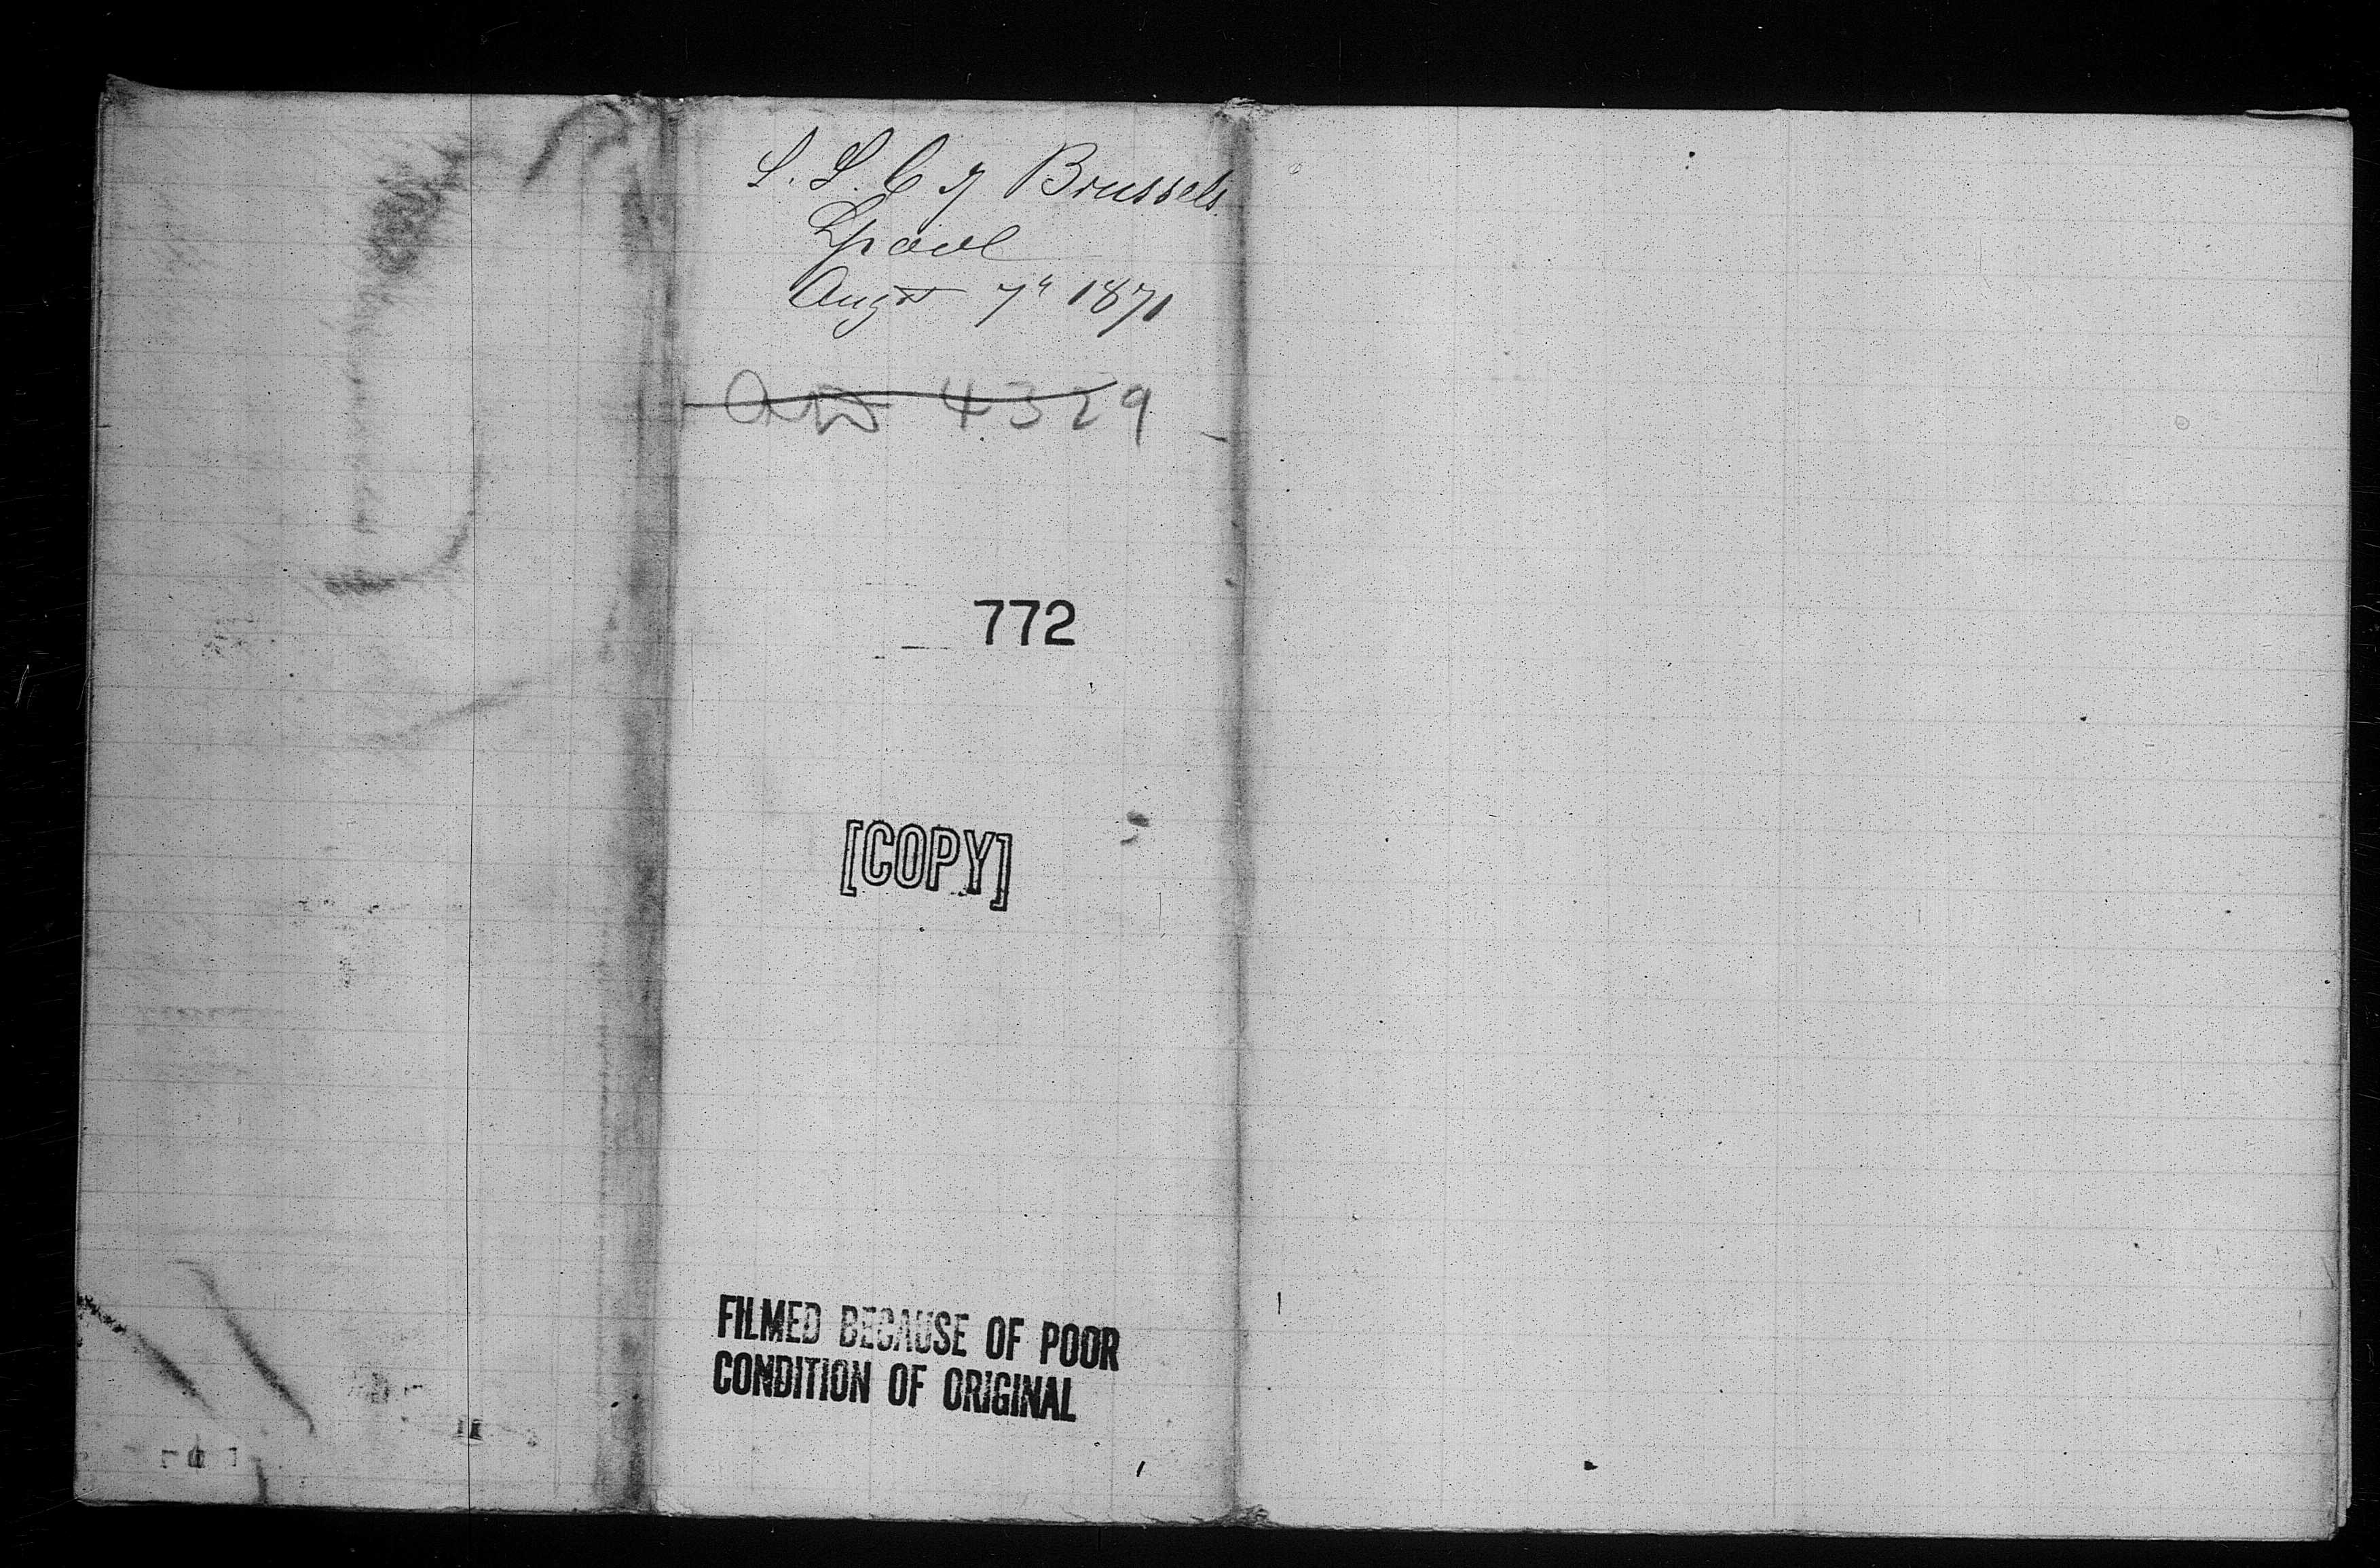 S. S. City Brussels
Lpool
Augst 7" 1871
4329
772
[COPY]
FILMED BECAUSE OF POOR
CONDITION OF ORIGINAL